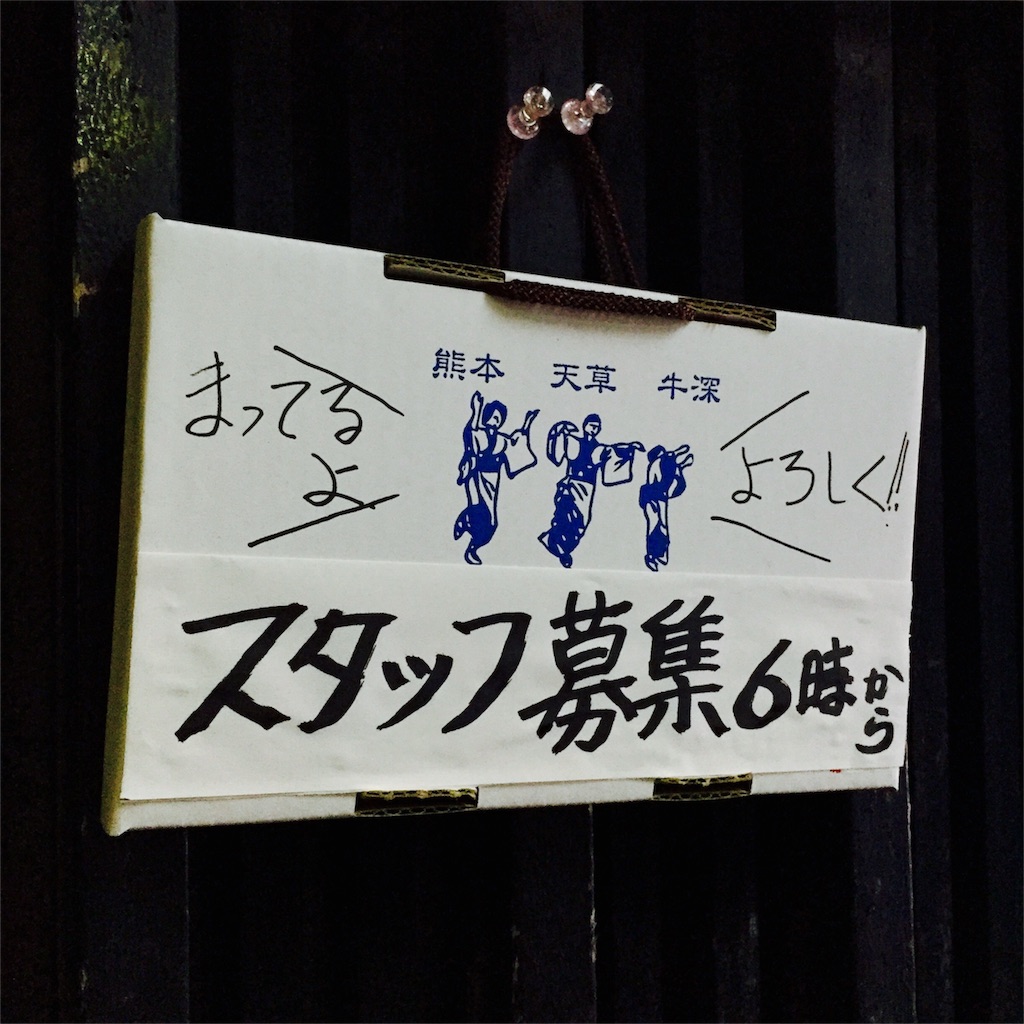 熊本 天草 牛深
まってる
よ
よろしく!!
スタッフ募集6時から